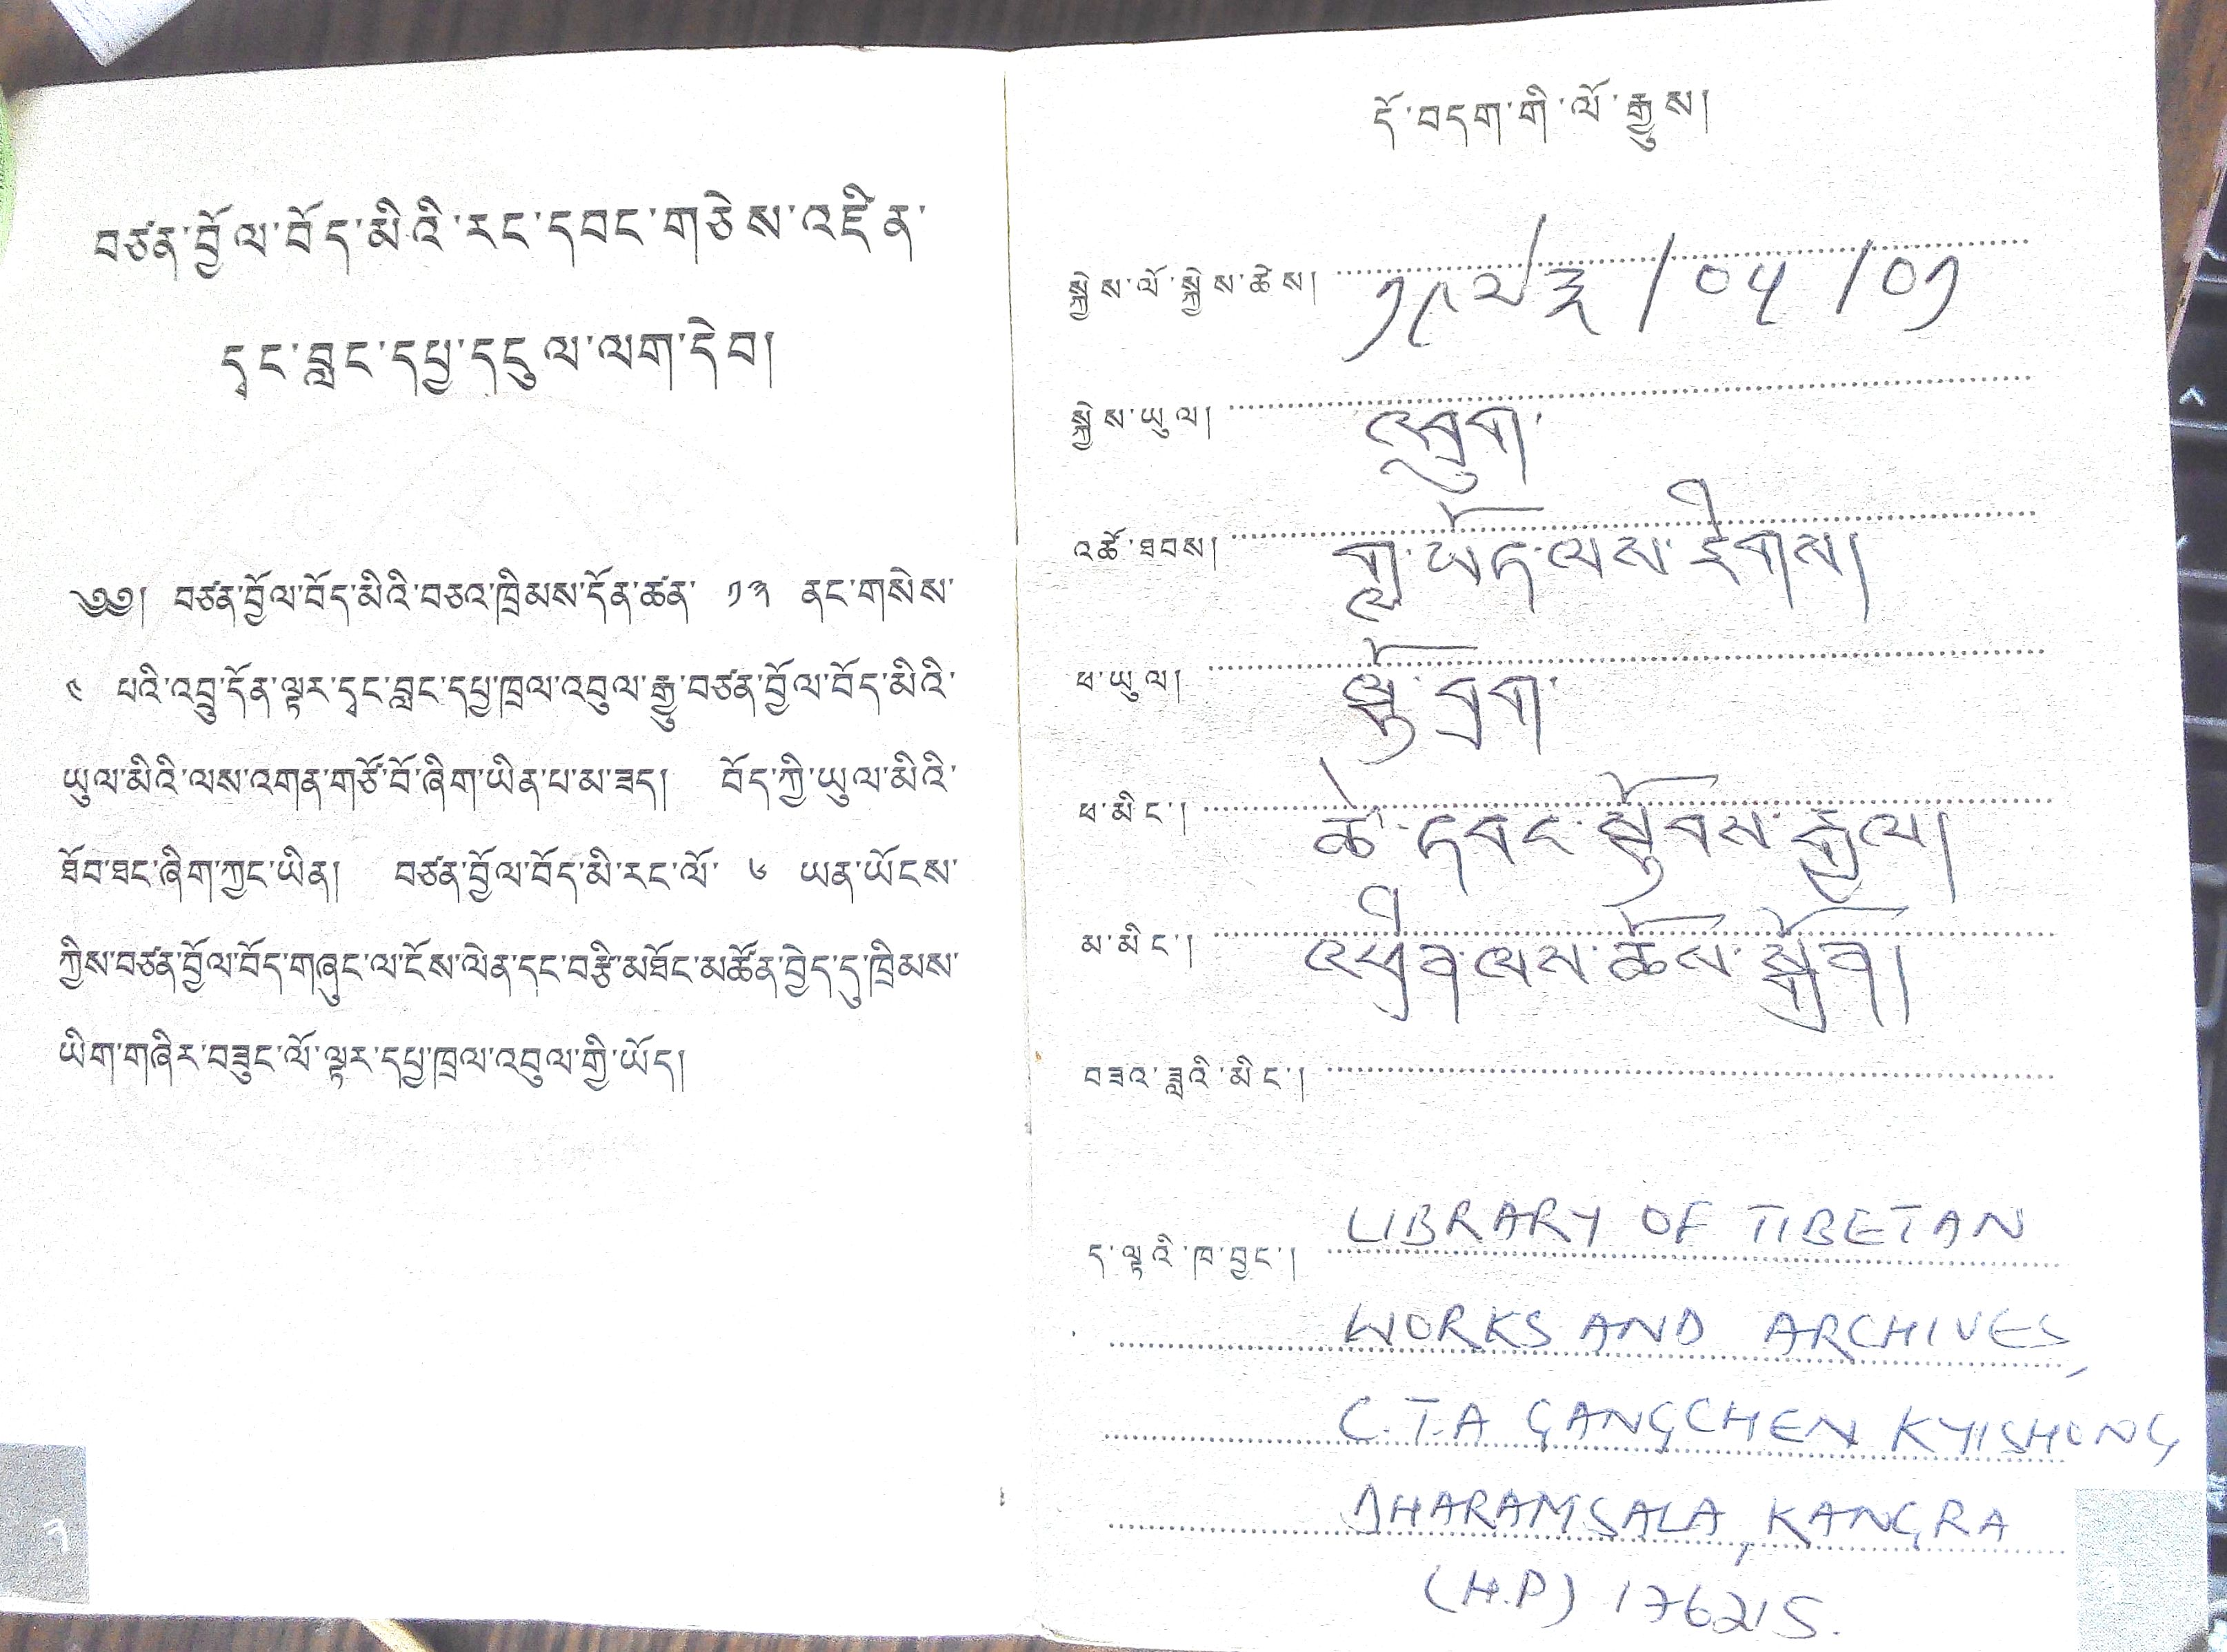 བཙན་བྱོལ་བོད་མིའི་རང་དབང་གཅེས་འཛིན་
དྭང་བླང་དཔྱ་དངུལ་ལག་དེབ།
༄༅། བཙན་བྱོལ་བོད་མིའི་བཅའ་ཁྲིམས་དོན་ཚན་ ༡༣ ནང་གསེས་
༤ པའི་འབྲུ་དོན་ལྟར་དྭང་བླང་དཔྱ་ཁྲལ་འབུལ་རྒྱུ་བཙན་བྱོལ་བོད་མིའི་
ཡུལ་མིའི་ལས་འགན་གཙོ་བོ་ཞིག་ཡིན་པ་མ་ཟད། བོད་ཀྱི་ཡུལ་མིའི་
ཐོབ་ཐང་ཞིག་ཀྱང་ཡིན། བཙན་བྱོལ་བོད་མི་རང་ལོ་ ༦ ཡན་ཡོངས་
ཀྱིས་བཙན་བྱོལ་བོད་གཞུང་ལ་ངོས་ལེན་དང་བརྩི་མཐོང་མཚོན་བྱེད་དུ་ཁྲིམས་
ཡིག་གཞིར་བཟུང་ལོ་ལྟར་དཔྱ་ཁྲལ་འབུལ་གྱི་ཡོད།
༡
དོ་བདག་གི་ལོ་རྒྱུས།
སྐྱེས་ལོ་སྐྱེས་ཚེས། /༠༥ /༠༡
སྐྱེས་ཡུལ། འབྲུག་
འཚོ་ཐབས། གླ་ཡོད་ལས་རིགས།
ཕ་ཡུལ། ལྷོ་བྲག་
ཕ་མིང་། ཚེ་དབང་སྟོབས་རྒྱལ།
མ་མིང་། འཕྲིན་ལས་ཆོས་སྒྲོན།
བཟའ་ཟླའི་མིང་།
ད་ལྟའི་ཁ་བྱང་། LIBRARY OF TIBETAN
WORKS AND ARCHIVES,
C.T.A GANGCHEN KYISHONG
DHARAMSALA, KANGRA
(H.P) 176215.